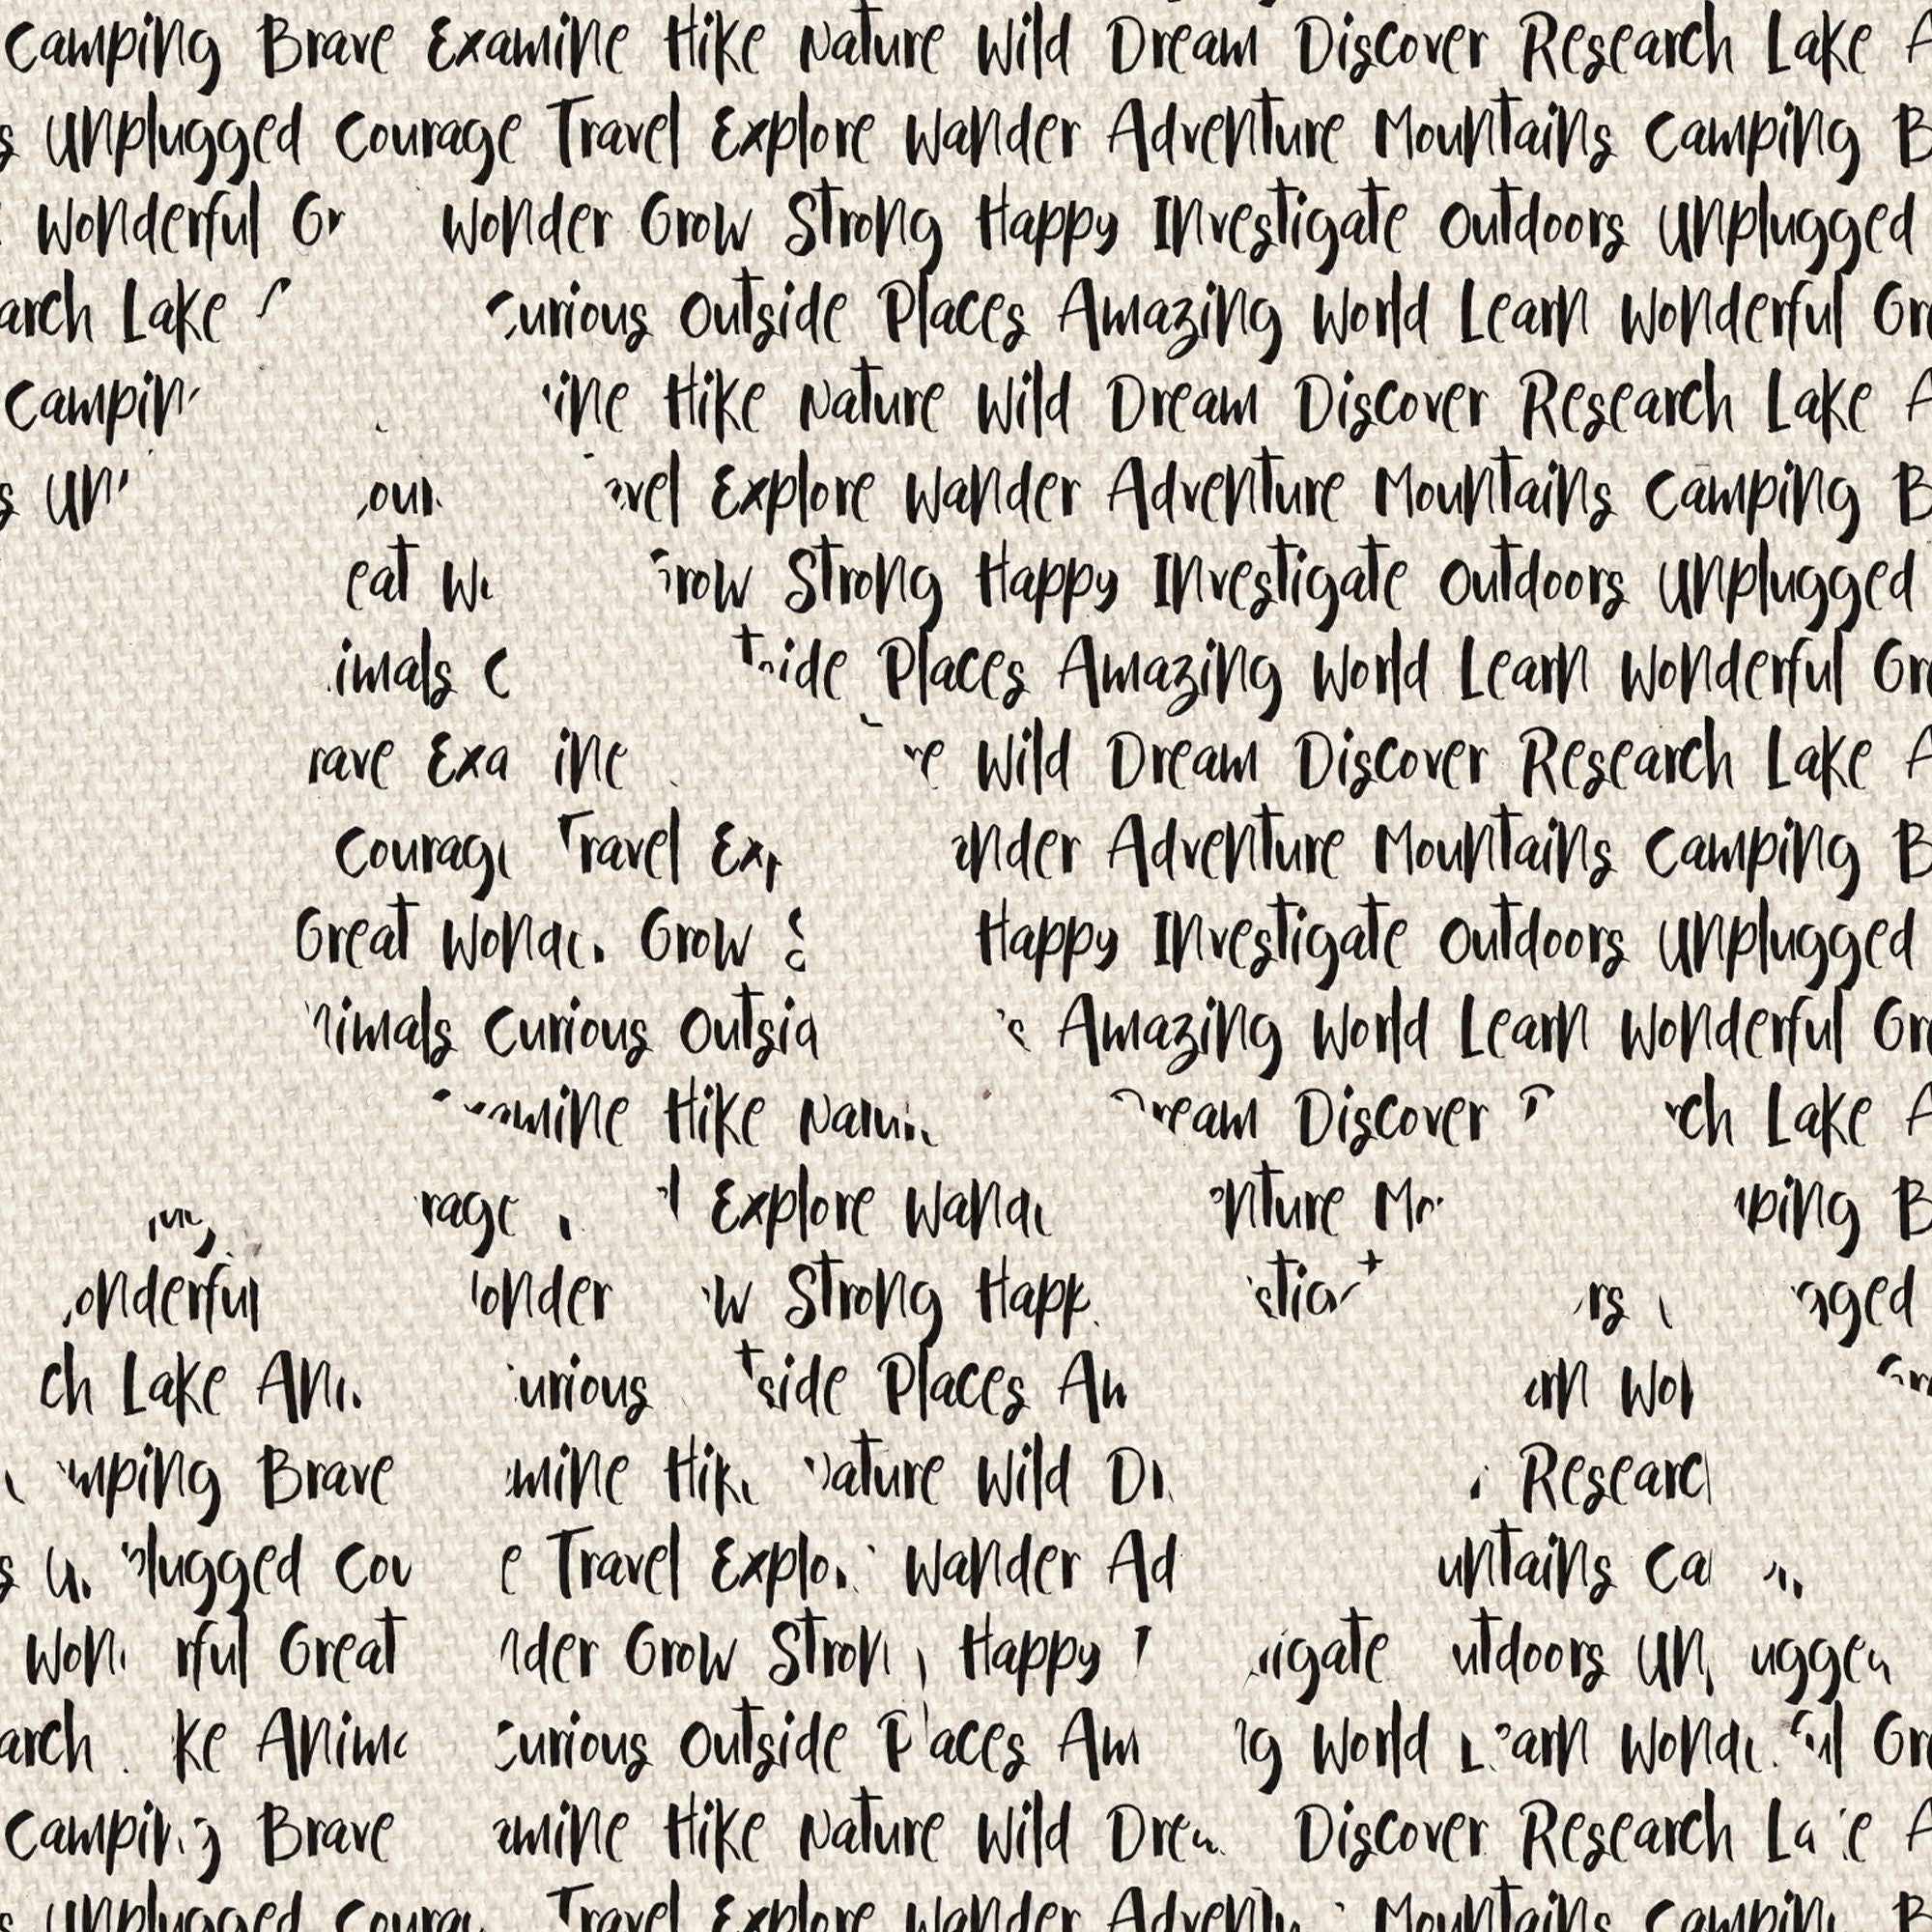 Camping Brave Examine Hike Nature Wild Dream Discover Research Lake
Unplugged Courage Travel Explore Wander Adventure Mountains Camping
Wonderful Wonder Grow Strong Happy Investigate Outdoors Unplugged
arch Lake urious Outside Places Amazing World Learn Wonderful Gr
Campin ine Hike Nature Wild Dream Discover Research Lake
s Un our vel Explore Wander Adventure Mountains Camping B
eat W row Strong Happy Investigate Outdoors Unplugged
imals ide Places Amazing World Learn Wonderful Gr
rave Exa ine re Wild Dream Discover Research Lake
Courag Travel Ex nder Adventure Mountains Camping B
Great Wond Grow Happy Investigate Outdoors Unplugged
nimals Curious Outsid Amazing World Learn Wonderful Gr
mine Hike Natu ream Discover ch Lake
rage Explore Wand nture Mo ping B
onderful onder w Strong Happ stig rs gged
ch Lake An urious side Places Am rn Wo
mping Brave mine Hik ature Wild D Researc
s U lugged Cou e Travel Explo Wander Ad untains Ca
Won rful Great nder Grow Stron Happy igate utdoors Un ugge
arch ke Anim urious Outside P aces Am g World arn Wond ul Gr
Campin g Brave mine Hike Nature Wild Dre Discover Research La e
Unplugged Coura Travel Explore Wander Advent Mountains Campin B